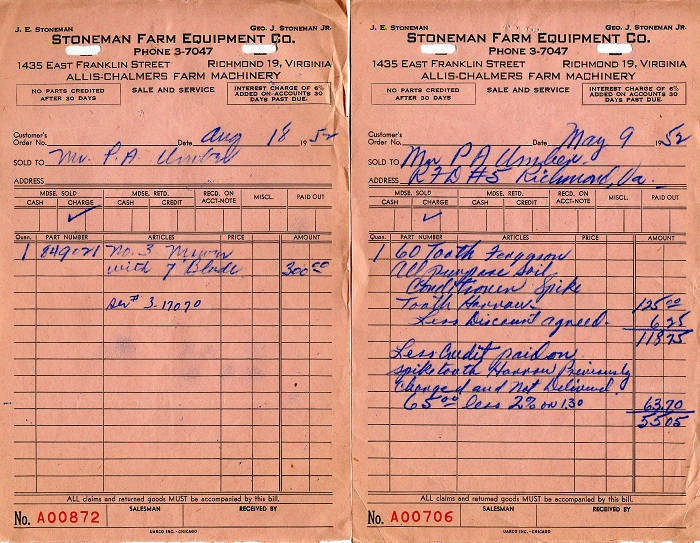 J. E. Stoneman Geo. J. Stoneman Jr.
Stoneman Farm Equipment Co.
Phone 3-7047
1435 East Franklin Street Richmond 19, Virginia
ALLIS-CHALMERS FARM MACHINERY
NO PARTS CREDITED AFTER 30 DAYS
SALE AND SERVICE
INTEREST CHARGE OF 6% ADDED ON ACCOUNTS 30 DAYS PAST DUE.
Customer's
Order No. Date Aug 18 1952
SOLD TO Mr. P. A.
ADDRESS
MDSE. SOLD MDSE. RETD. RECD. ON ACCT-NOTE MISCL. PAID OUT
CASH CHARGE CASH CREDIT
✓
Quan. PART NUMBER ARTICLES PRICE AMOUNT
1 849021 No. 3 Mower
with 7' Blade 300 00
Ser# 3-17070
ALL claims and returned goods MUST be accompanied by this bill.
No. A00872 SALESMAN RECEIVED BY
UARCO INC.-CHICAGO
J. E. Stoneman Geo. J. Stoneman Jr.
Stoneman Farm Equipment Co.
Phone 3-7047
1435 East Franklin Street Richmond 19, Virginia
ALLIS-CHALMERS FARM MACHINERY
NO PARTS CREDITED AFTER 30 DAYS
SALE AND SERVICE
INTEREST CHARGE OF 6% ADDED ON ACCOUNTS 30 DAYS PAST DUE.
Customer's
Order No. Date May 9 1952
SOLD TO Mr P A
ADDRESS RFD #5 Richmond, Va.
MDSE. SOLD MDSE. RETD. RECD. ON ACCT-NOTE MISCL. PAID OUT
CASH CHARGE CASH CREDIT
✓
Quan. PART NUMBER ARTICLES PRICE AMOUNT
1 60 Tooth Ferguson
All purpose Soil
Conditioner Spike
Tooth Harrow 125 00
Less Discount agreed- 6 25
118 75
Less Credit paid on
spike tooth Harrow Previously
Charged and Not Delivered
65 00 less 2% on 1.30 63 70
55 05
ALL claims and returned goods MUST be accompanied by this bill.
No. A00706 SALESMAN RECEIVED BY
UARCO INC.-CHICAGO